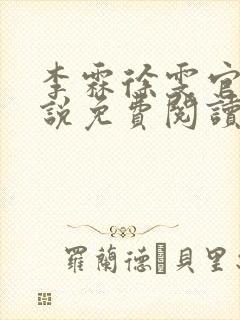 李霖徐雯官
說免費閱讀
羅蘭德·貝里